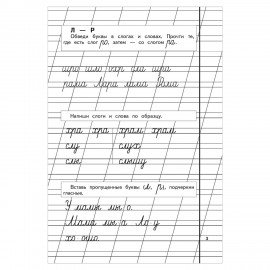 Л — Р
Обведи буквы в слогах и словах. Прочти те,
где есть слог ро, затем — со слогом ра.
ла ша
рама Лара лама Рома
Напиши слоги и слова по образцу.
хра хра храм храм
слу слух
слы слышу
Вставь пропущенные буквы (л, р), подчеркни
гласные.
У мамы мы о.
Мама мы а Ла у
хо ошо.
3